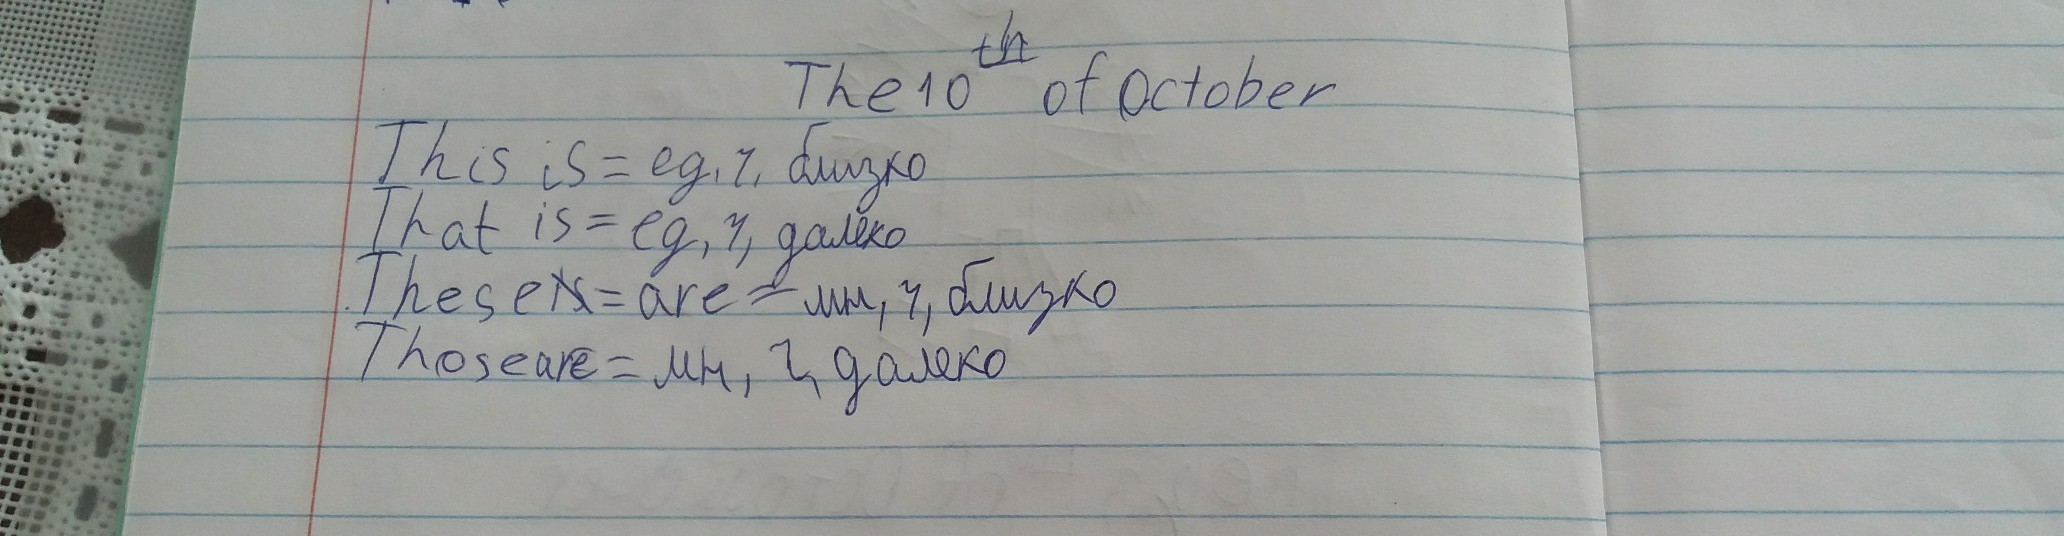 The 10th of October
This is = ед. ч. близко
That is = ед, ч, далеко
These = are = мн, ч, близко
Those are = мн, ч, далеко